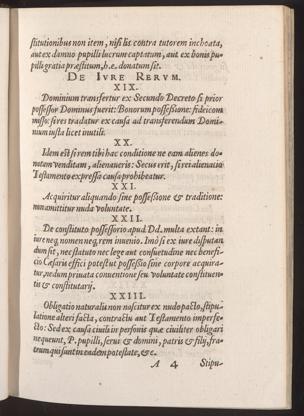 stitutionibus non item, nisi lis contra tutorem inchoata,
aut ex damno pupilli lucrum captatum, aut ex bonis pu-
pilli gratia præstitum, h.e. donatum sit.
DE IVRE RERVM.
XIX.
Dominium transfertur ex Secundo Decreto si prior
possessor Dominus fuerit: Bonorum possessione: fideicom
misso: si res tradatur ex causa ad transferendum Domi-
nium iusta licet inutili.
XX.
Idem est si rem tibi hac conditione ne eam alienes do-
no tem venditam, alienaveris: Secus erit, si rei alienatio
Testamento expresso causa prohibeatur.
XXI.
Acquiritur aliquando sine possessione & traditione:
non amittitur nuda voluntate.
XXII.
De constituto possessorio apud Dd. multa extant: in
iure neq, nomen neq, rem invenio. Imò si ex iure disputan
dum sit, nec statuto nec lege aut consuetudine nec benefi-
cio Cæsaris effici potest ut possessio sine corpore acquira-
tur, nedum privata conventione seu voluntate constituen-
tis & constitutarij.
XXIII.
Obligatio naturalis non nascitur ex nudo pacto, stipu-
latione alteri facta, contractu aut Testamento imperfe-
cto: Sed ex causa civili in personis quæ civiliter obligari
nequeunt, P. pupilli, servi & domini, patris & filij, fra-
trum qui sunt in eadem potestate, &c.
A 4 Stipu-